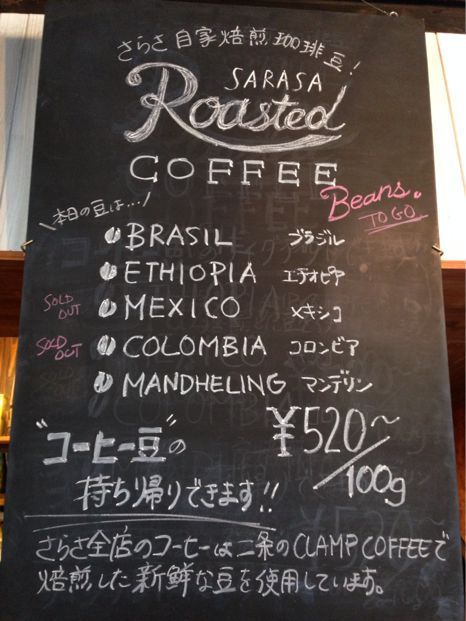 さらさ 自家焙煎 珈琲豆!
SARASA
Roasted
COFFEE
Beans.
TO GO
本日の豆は...
BRASIL ブラジル
ETHIOPIA エチオピア
SOLD OUT MEXICO メキシコ
SOLD OUT COLOMBIA コロンビア
MANDHELING マンデリン
"コーヒー豆"の
¥520~/100g
持ち帰りできます!!
さらさ全店のコーヒーは二条のCLAMP COFFEEで
焙煎した新鮮な豆を使用しています。